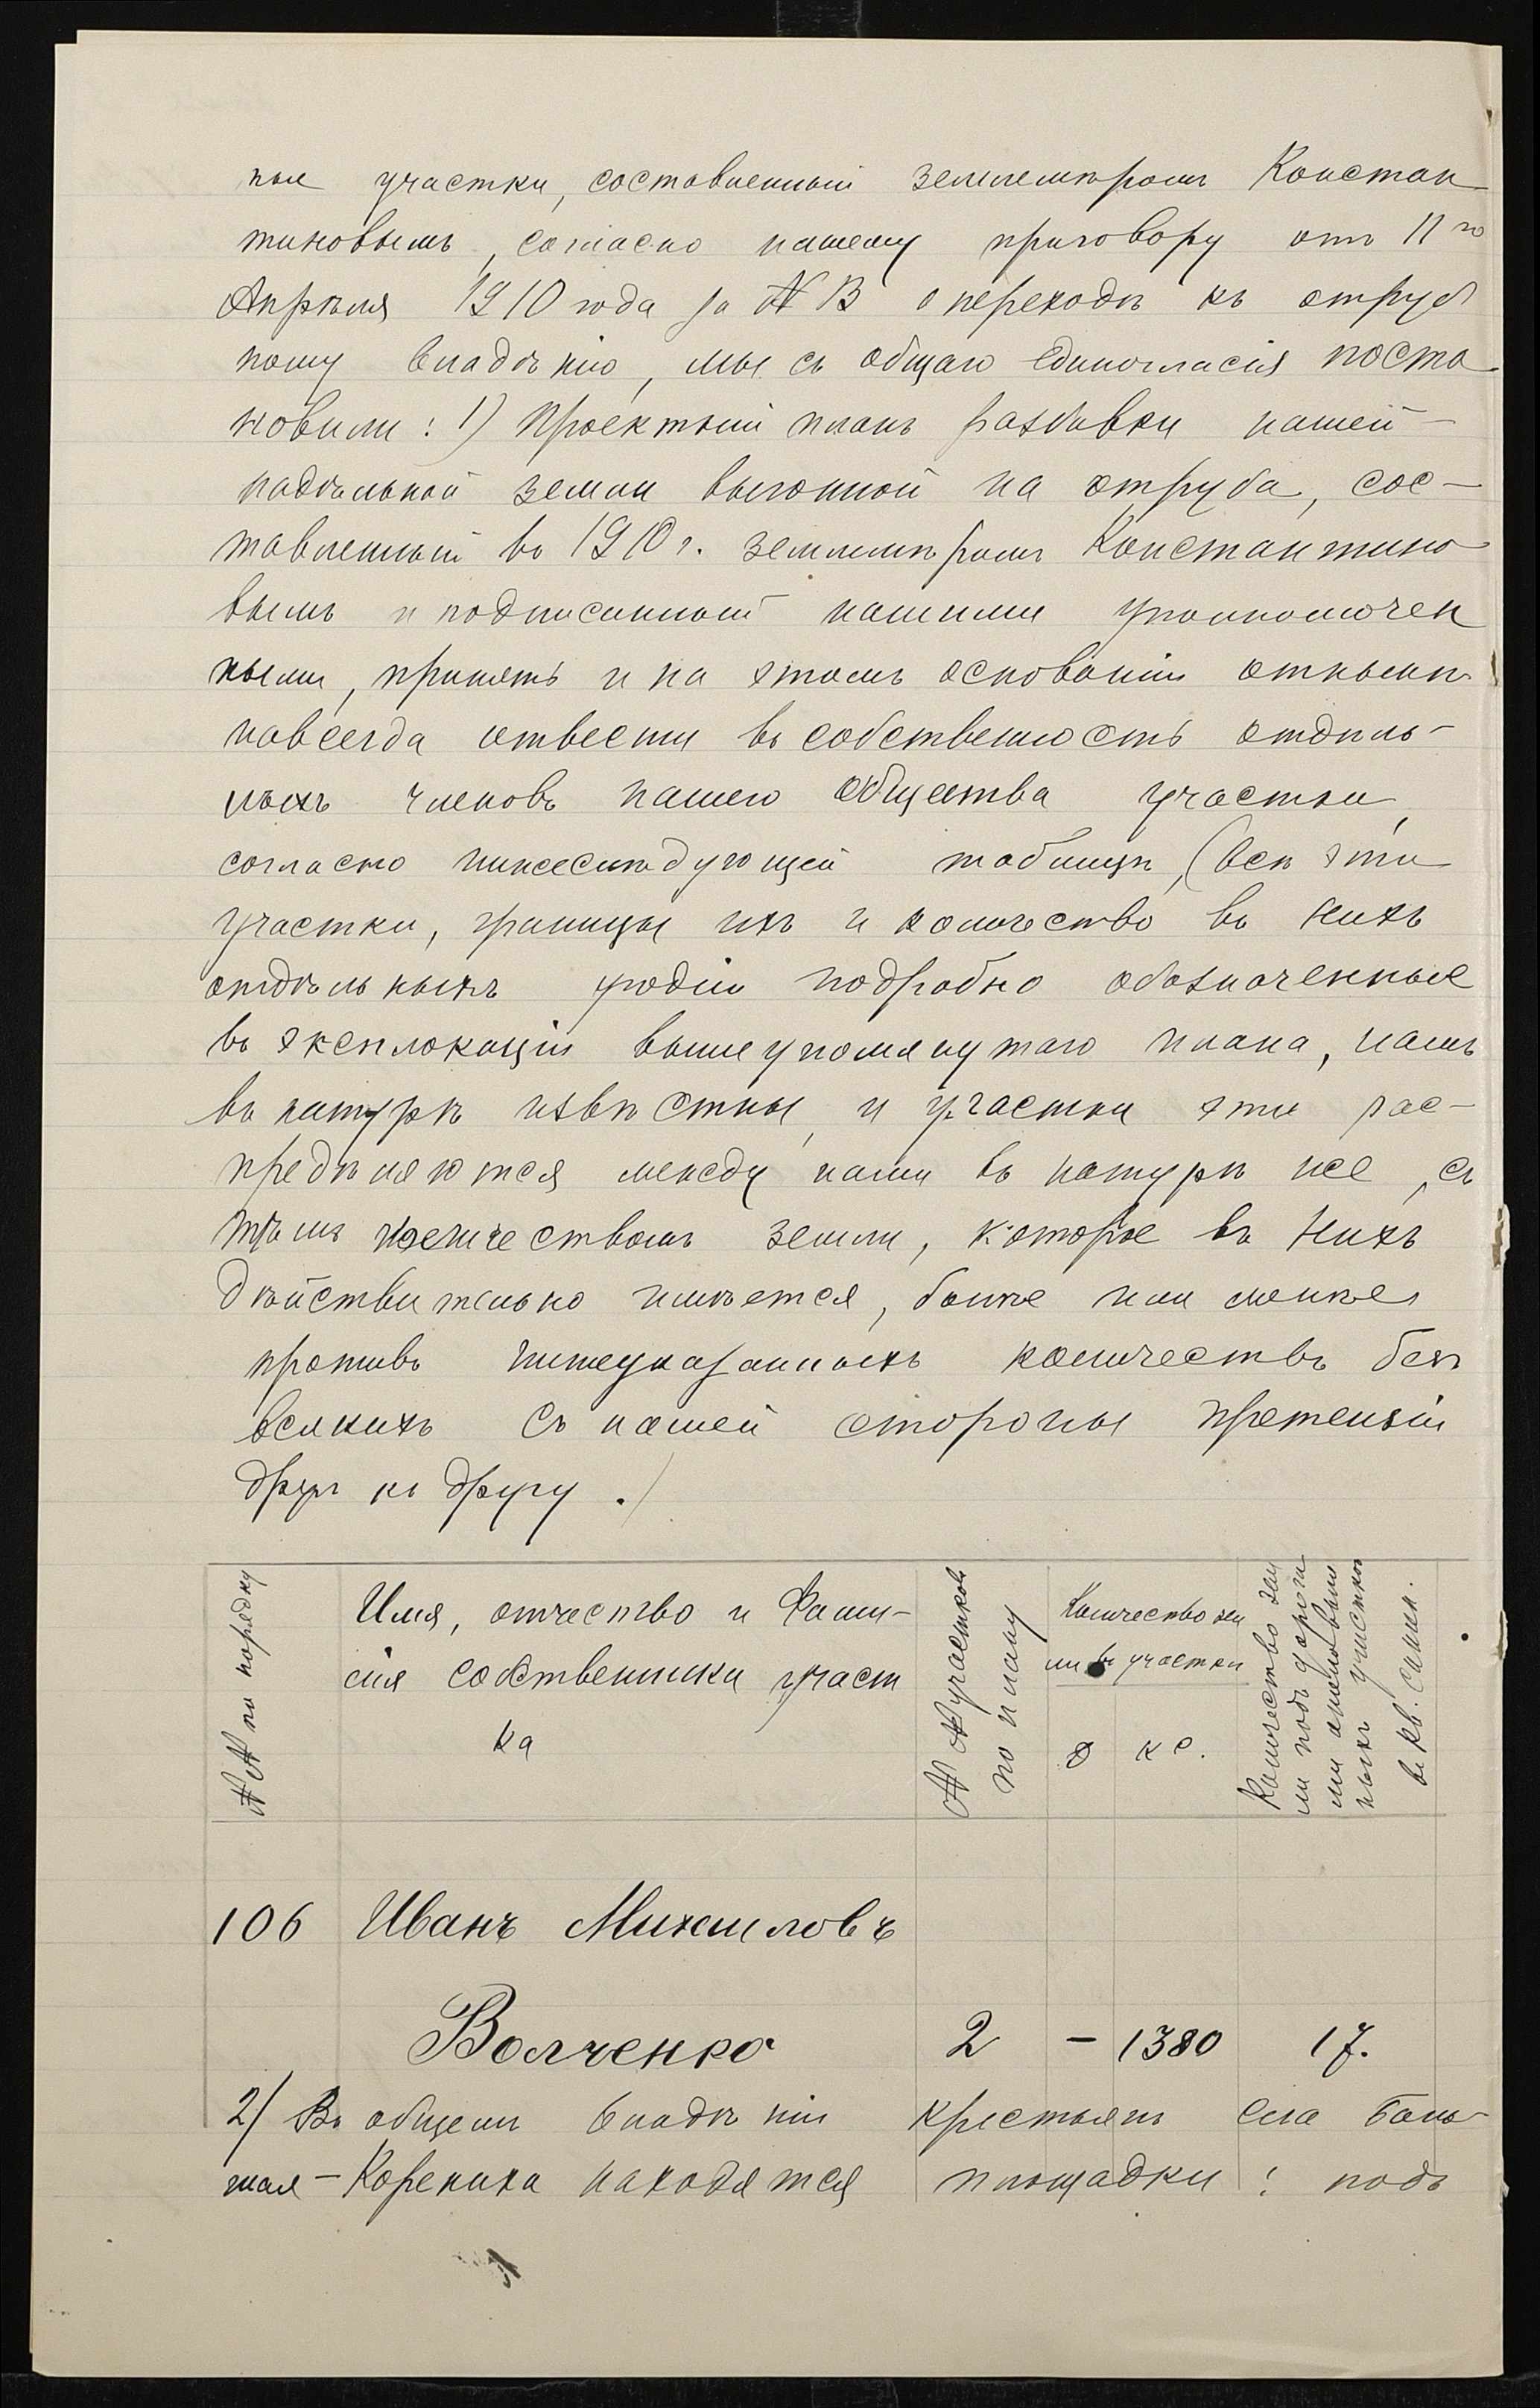 ные участки, составленный землемѣромъ Констан
тиновымъ, согласно нашему приговору отъ 11го
Апрѣля 1910 года за № 13 о переходѣ къ отруб
ному владѣнію, мы съ общаго единогласія поста
новили: 1) Проектный планъ разбивки нашей
надѣльной земли выгонной на отруба, сос-
тавленный въ 1910 г. землемѣромъ Константино
вымъ и подписанный нашими уполномочен
ными, принять и на этомъ основаніи отнынѣ
навсегда отвести въ собственность отдѣль-
ныхъ членовъ нашего общества участки,
согласно нижеслѣдующей таблицѣ, (всѣ эти
участки, границы ихъ и количество въ нихъ
отдѣльныхъ угодій подробно обозначенные
въ экспликаціи вышеупомянутаго плана, намъ
въ натурѣ извѣстны, и участки эти рас-
предѣляются между нами въ натурѣ же, съ
тѣмъ количествомъ земли, которое въ нихъ
дѣйствительно имѣется, болѣе или менѣе
противъ нижеуказанныхъ количествъ безъ
всякихъ съ нашей стороны претензій
другъ къ другу.)
№№ по порядку
Имя, отчество и Фами-
лія собственника участ
ка
№№ участковъ
по плану
Количество зем
ли въ участкѣ
д кс.
Количество зем
ли подъ дорога
ми
ныхъ участков
въ кв. саж.
106 Иванъ Михаиловъ
Волченко 2 - 1380 17.
2) Въ общемъ владѣніи крестьянъ села Боль-
шая-Корениха находятся площадки: подъ